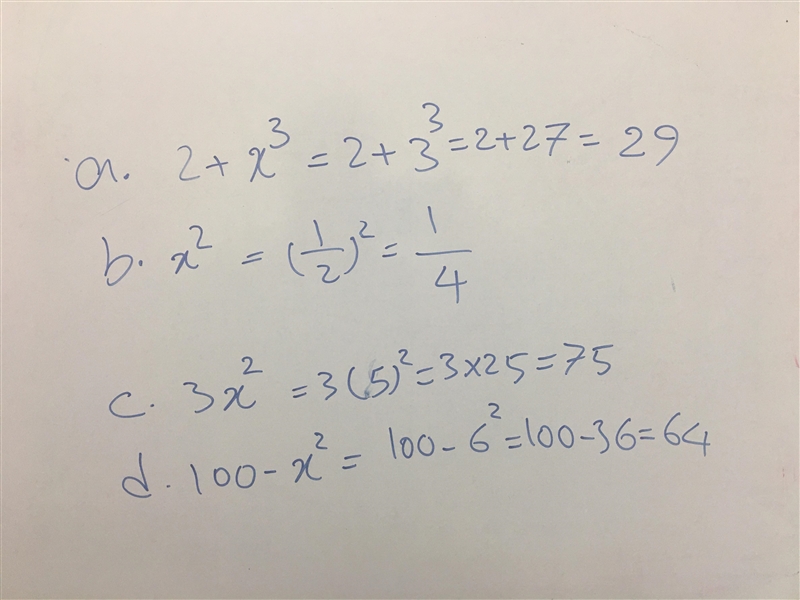 a. 2 + x³ = 2 + 3³ = 2 + 27 = 29
b. x² = (1/2)² = 1/4
c. 3x² = 3(5)² = 3 × 25 = 75
d. 100 - x² = 100 - 6² = 100 - 36 = 64